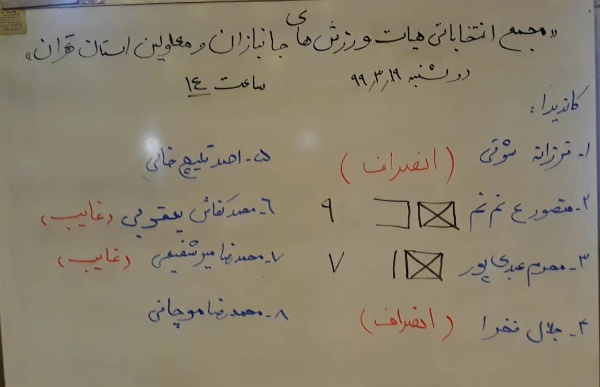 «مجمع انتخاباتی هیات ورزش های جانبازان و معلولین استان تهران»
دوشنبه ۹۹٫۳٫۱۹ ساعت ۱۴
کاندیدا:
۱- فرزانه شوقی (انصراف)
۲- منصور ع نم نم ۹
۳- محرم عبدی پور ۷
۴- جلال فخرا (انصراف)
۵- احد قلیچ خانی
۶- محمد کفاش یعقوبی (غایب)
۷- محمدرضا میرشفیعی (غایب)
۸- محمدرضا موچانی